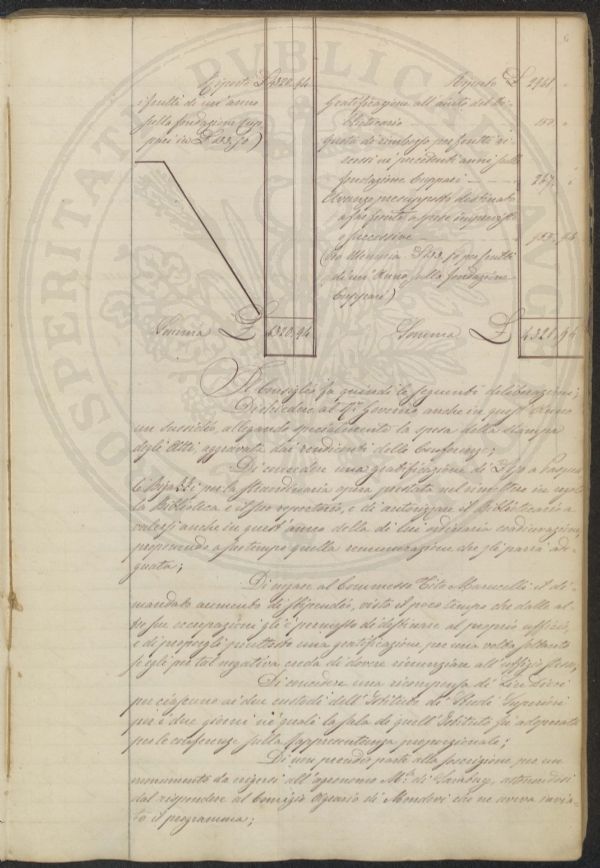 Riporto £ 4320.94
i frutti di un anno
sulla fondazione Cup
pari in £ 233.50)
Somma £ 4320.94
Riporto £ 2961 "
Gratificazione all'aiuto del Bi-
bliotecario 100 "
Quota di rimborso per frutti
in precedenti anni sulla
fondazione Cuppari 267 "
Avanzo presupposto destinato
a far fronte a spese impreviste
e successive
(Per Memoria £ 233.50 per frutti
di un'Anno sulla fondazione
Cuppari)
Somma £ 4321.94
Il Consiglio fa quindi le seguenti deliberazioni;
Di chiedere al R.º Governo anche in quest'anno
un sussidio, allegando specialmente la spesa della stampa
degli Atti, aggravata dai rendiconti delle Conferenze;
Di concedere una gratificazione di £ 50 a Pasqua
le per la straordinaria opera prestata nel rimettere in
la Biblioteca e il suo repertorio, e di autorizzare il Bibliotecario a
valersi anche in quest'anno della di lui ordinaria coadiuvazione,
proponendo a suo tempo quella remunerazione che gli parrà ade-
guata;
Di negare al Commesso Tito Marucelli il di-
mandato aumento di stipendio, visto il poco tempo che dalle al-
tre sue occupazioni gli è permesso di destinare al proprio ufficio,
e di proporgli piuttosto una gratificazione per una volta soltanto
se egli per tal negativa creda di dovere rinunziare all'uffizio stesso;
Di concedere una ricompensa di Lire Dieci
per ciascuno ai due custodi dell'Istituto di Studi Superiori
per i due giorni ne' quali la sala di quell'Istituto fu adoperata
per le conferenze sulla rappresentanza proporzionale;
Di non prender parte alla soscrizione per un
monumento da erigersi all'agronomo M.se di Sambuy, astenendosi
dal rispondere al Comizio Agrario di Mondovì che ne aveva invia-
to il programma;